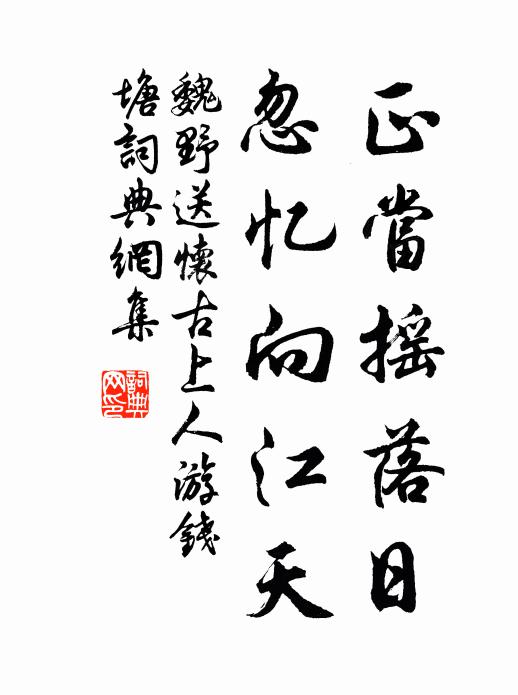 正當摇落日
忽忆向江天
魏野送懷古上人游錢
塘詞典網集
詞典
网印